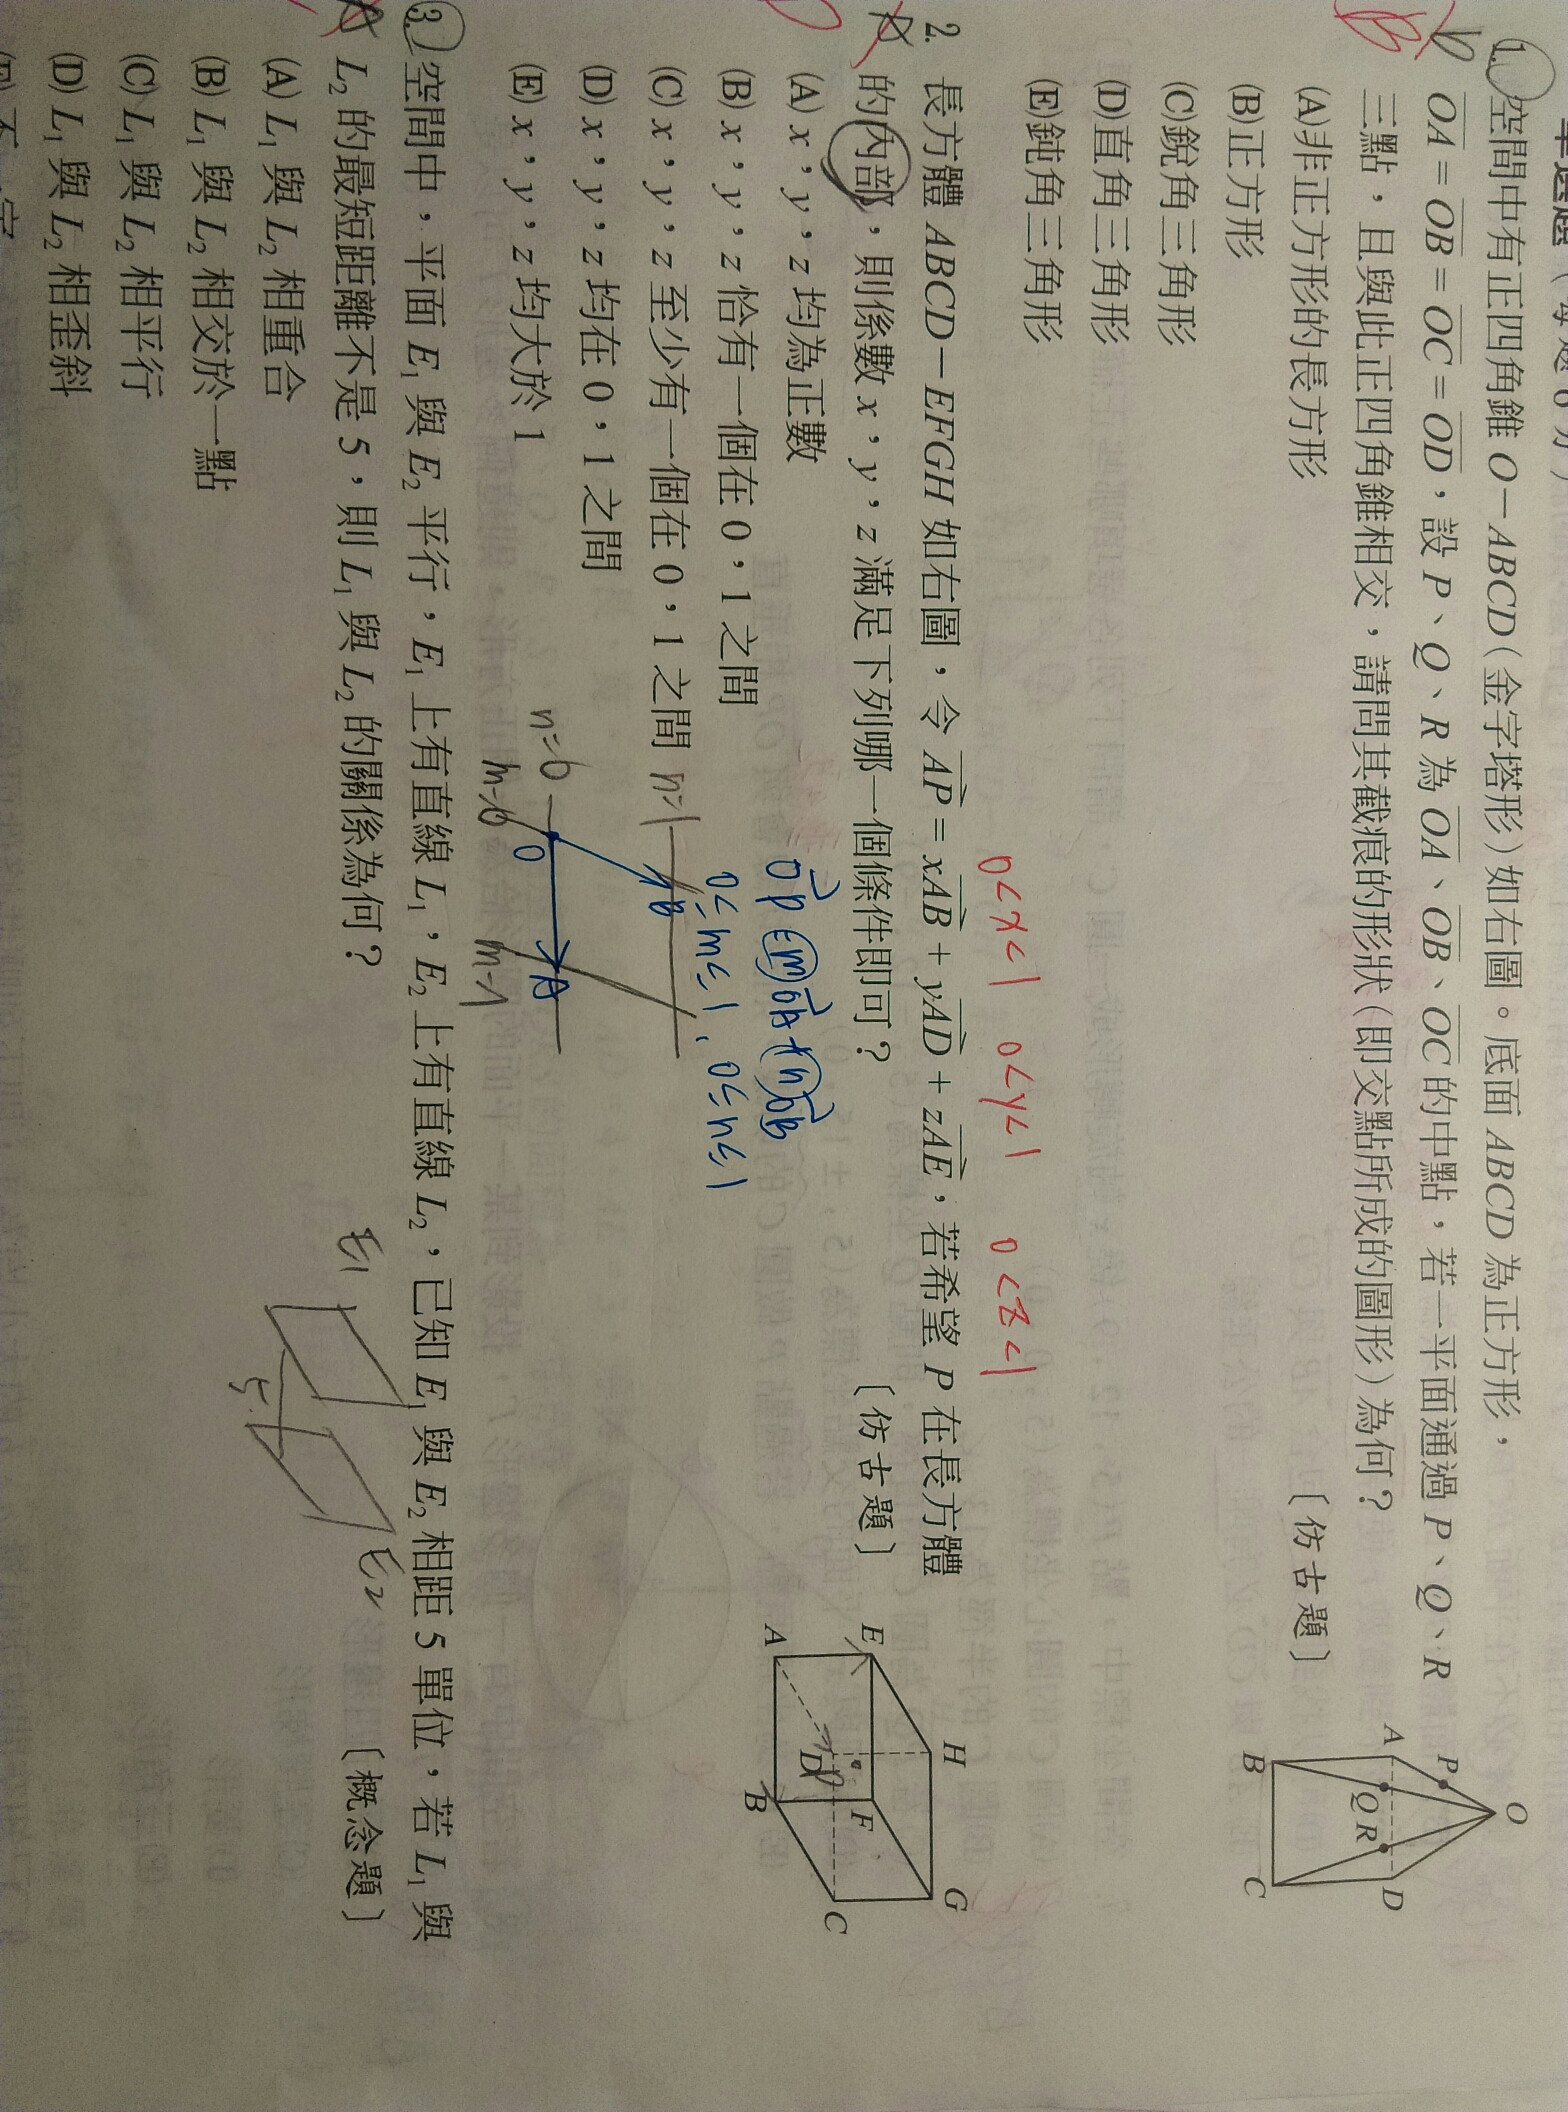 單選題(每題6分)
1. 空間中有正四角錐 O-ABCD(金字塔形)如右圖。底面 ABCD 為正方形,
OA = OB = OC = OD,設 P、Q、R 為 OA、OB、OC 的中點,若一平面通過 P、Q、R
三點,且與此正四角錐相交,請問其截痕的形狀(即交點所成的圖形)為何?
〔仿古題〕
(A)非正方形的長方形
(B)正方形
(C)銳角三角形
(D)直角三角形
(E)鈍角三角形
D
B
O
P
A
Q
R
D
B
C
0<x<1 0<y<1 0<z<1
2. 長方體 ABCD-EFGH 如右圖,令 AP = xAB + yAD + zAE,若希望 P 在長方體
的內部,則係數 x,y,z 滿足下列哪一個條件即可? 〔仿古題〕
(A) x,y,z 均為正數
(B) x,y,z 恰有一個在 0,1 之間
(C) x,y,z 至少有一個在 0,1 之間
(D) x,y,z 均在 0,1 之間
(E) x,y,z 均大於 1
A
D
OP = mOA + nOB
0≤m≤1, 0≤n≤1
n=1
B
n=0
O
A
m=0
m=1
H
G
E
F
D
C
A
B
3. 空間中,平面 E1 與 E2 平行,E1 上有直線 L1,E2 上有直線 L2,已知 E1 與 E2 相距 5 單位,若 L1 與
L2 的最短距離不是 5,則 L1 與 L2 的關係為何? 〔概念題〕
(A) L1 與 L2 相重合
(B) L1 與 L2 相交於一點
(C) L1 與 L2 相平行
(D) L1 與 L2 相歪斜
A
E1
E2
5